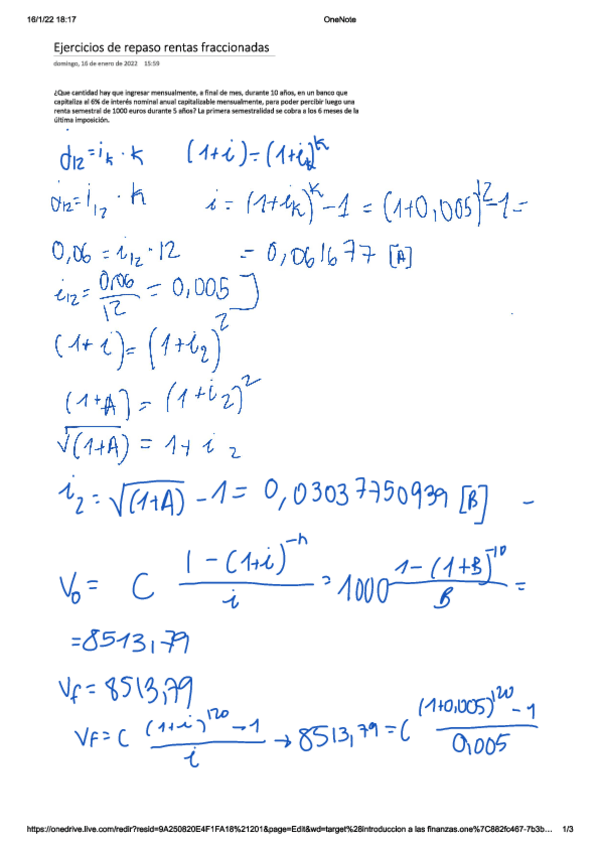 16/1/22 18:17 OneNote
Ejercicios de repaso rentas fraccionadas
domingo, 16 de enero de 2022 15:59
¿Que cantidad hay que ingresar mensualmente, a final de mes, durante 10 años, en un banco que
capitaliza al 6% de interés nominal anual capitalizable mensualmente, para poder percibir luego una
renta semestral de 1000 euros durante 5 años? La primera semestralidad se cobra a los 6 meses de la
última imposición.
d12 = ik · k (1+i) = (1+ik)^k
d12 = i12 · k i = (1+ik)^k - 1 = (1+0,005)^12 - 1 =
0,06 = i12 · 12 = 0,061677 [A]
i12 = 0,06/12 = 0,005
(1+i) = (1+i2)^2
(1+A) = (1+i2)^2
√(1+A) = 1+i2
i2 = √(1+A) - 1 = 0,03037750939 [B] -
V0 = C (1-(1+i)^-n)/i = 1000 (1-(1+B)^-10)/B =
= 8513,79
Vf = 8513,79
Vf = C ((1+i)^120 - 1)/i → 8513,79 = C ((1+0,005)^120 - 1)/0,005
https://onedrive.live.com/redir?resid=9A250820E4F1FA18%21201&page=Edit&wd=target%28introduccion a las finanzas.one%7C882fc467-7b3b... 1/3